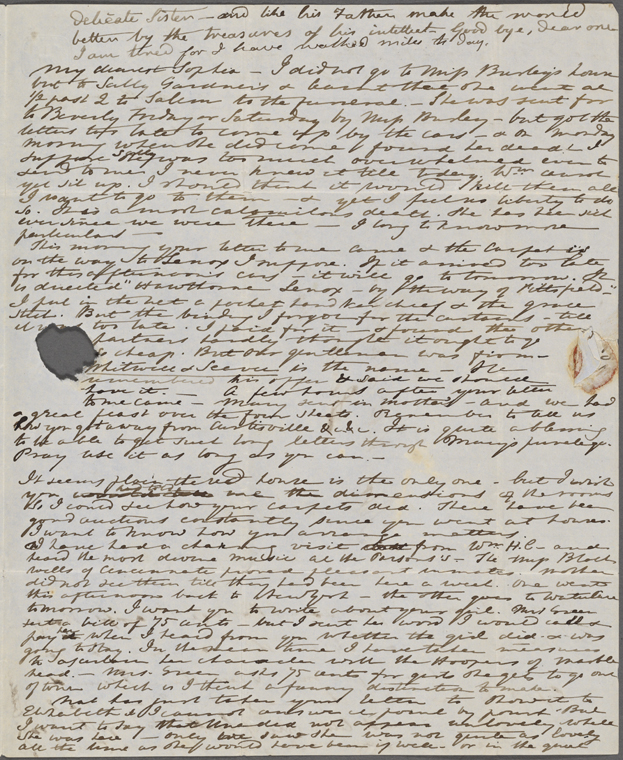 delicate Sister - and like his Father make the world
better by the treasures of his intellect - Good bye, dear one
I am tired for I have walked miles to day.
My dearest Sophia - I did not go to Miss Burley's house
but to Sally Gardner's & learnt that she went at
1/2 past 2 to Salem to the funeral. - She was sent for
to Beverly Friday or Saturday by Miss Burley - but got the
letters too late to come up by the cars - & on Monday
morning when she did come found her dead! - I
suppose was too much overwhelmed even to
send to me. I never knew it till today. Wm cannot
yet sit up. I should think it would kill them all
I want to go to them - & yet I feel no liberty to do
so. It is a most calamitous death. She has been sick
ever since we were there - I long to know more
particulars -
This morning your letter to me came & the Carpet is
on the way to Lenox I suppose. If it arrived too late
for this afternoon's cars - it will go tomorrow. It
is directed "Hawthorne Lenox - by the way of Pittsfield" -
I put in the net a pocket handkerchief & the
But the binding I forgot for the curtains - till
it was too late. I paid for it - & found the other
partners hardly thought it ought to go
cheap. But our gentleman was firm -
Whitwell & Seaver is the name - He
remembered his offer & said we should
have it - A few hours after your letter
to me came - Mary sent in mother's - and we had
a great feast over the four sheets. Remember to tell us
how you got away from &c &c. It is quite a blessing
to be able to get such long letters through Mary's privilege.
Pray use it as long as you can. -
It seems plain the red house is the only one - but I wish
you had sent me the dimensions of the rooms
So I could see how your carpets did. There have been
good auctions constantly since you went at houses.
I want to know how you arrange matters
I have had a charming visit from Wm. H. C - and
heard the most divine music at the Parsons's - The Miss Black-
wells of Cincinnati proved pleasant inmates & mother
did not see them till they had been here a week. One went
this afternoon back to New York - the other goes to
tomorrow. I want you to write about your girl. Mrs Green
sent a bill of 75 cents - but I sent her word I would call &
pay her when I heard from you whether the girl did & was
going to stay. In the mean time I have taken measures
to ascertain her character with the Hoopers of Marble
head. Mrs. Green asks 75 cents for girls she gets to go out
of town which I think a funny distinction to make.
Nat has just taken your letter to show it to
Elizabeth & I cannot answer it point by point. But
I want to say did not appear unlovely while
she was here - only saw she was not quite as lovely
all the time as she would have been if well - or in the